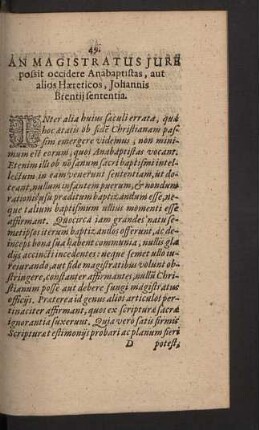 49.
AN MAGISTRATUS JURE
possit occidere Anabaptistas, aut
alios Hæreticos, Johannis
Brentij sententia.
INter alia huius sæculi errata, quæ
hoc ætatis ob scele Christianam pas-
sim emergere videmus, non mini-
mum est eorum, quos Anabaptistas vocant.
Etenim illi ob nō sanum sacri baptismi intel-
lectum in eam venerunt sententiam, ut do-
ceant, nullum infantem puerum, & nondum
rationis usu præditum baptizandum esse, ne-
que talium baptismum ullius momenti esse
affirmant. Quocirca iam grandes natu se-
metipsos iterum baptizandos offerunt, ac de-
inceps bona sua habent communia, nullis gla-
dijs accincti incedentes: neque semet ullo iu-
reiurando, aut fide magistratibus volunt ob-
stringere, constanter affirmantes, nullū Chri-
stianum posse aut debere fungi magistratus
officijs. Præterea id genus alios articulos per-
tinaciter affirmant, quot ex scripturæ sacræ
ignorantia suxerunt. Quia vero satis firmis
Scripturæ testimonijs probari ac planum fieri
D potest,